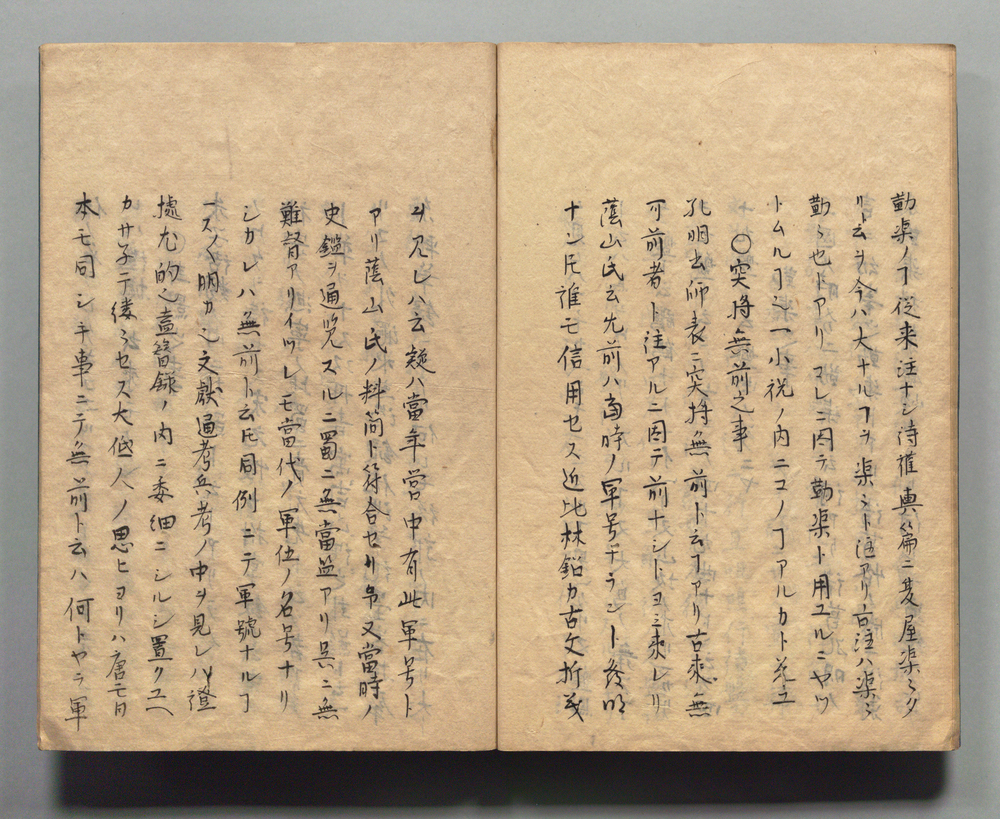 勤渠ノヿ従来注ナシ詩權輿篇ニ夏屋渠ミタ
リト云ヲ今ハ大ナルヿヲ渠ミト注アリ古注ハ渠ミ
勤ミ也トアリコレニ因テ勤渠ト用ユルニヤツ
トムルヿ也一小説ノ内ニコノヿアルカト
〇突将無前之事
孔明出師表ニ突将無前ト云ヿアリ古来無
可前者ト注アルニ因テ前ナシトヨミ来レリ
蔭山氏云先前ハ當時ノ軍号ナラント發明
ナシ𪜈誰モ信用セス近比林鉛カ古文析義
ヲ見レハ云疑ハ當年営中有此軍号ト
アリ蔭山氏ノ料簡ト符合セリ予又當時ノ
史鑑ヲ通覧スルニ蜀ニ無當監アリ呉ニ無
難督アリイツレモ當代ノ軍伍ノ名号ナリ
シカレハ無前ト云𪜈同例ニテ軍號ナルヿ
一スノ明カ也文獻通考兵考ノ中ヲ見レハ證
據尤的也盍簪録ノ内ニ委細ニシルシ置クユヘ
カサ子テ縷ミセス大低人ノ思ヒヨリハ唐モ日
本モ同シキ事ニテ無前ト云ハ何トヤラ軍